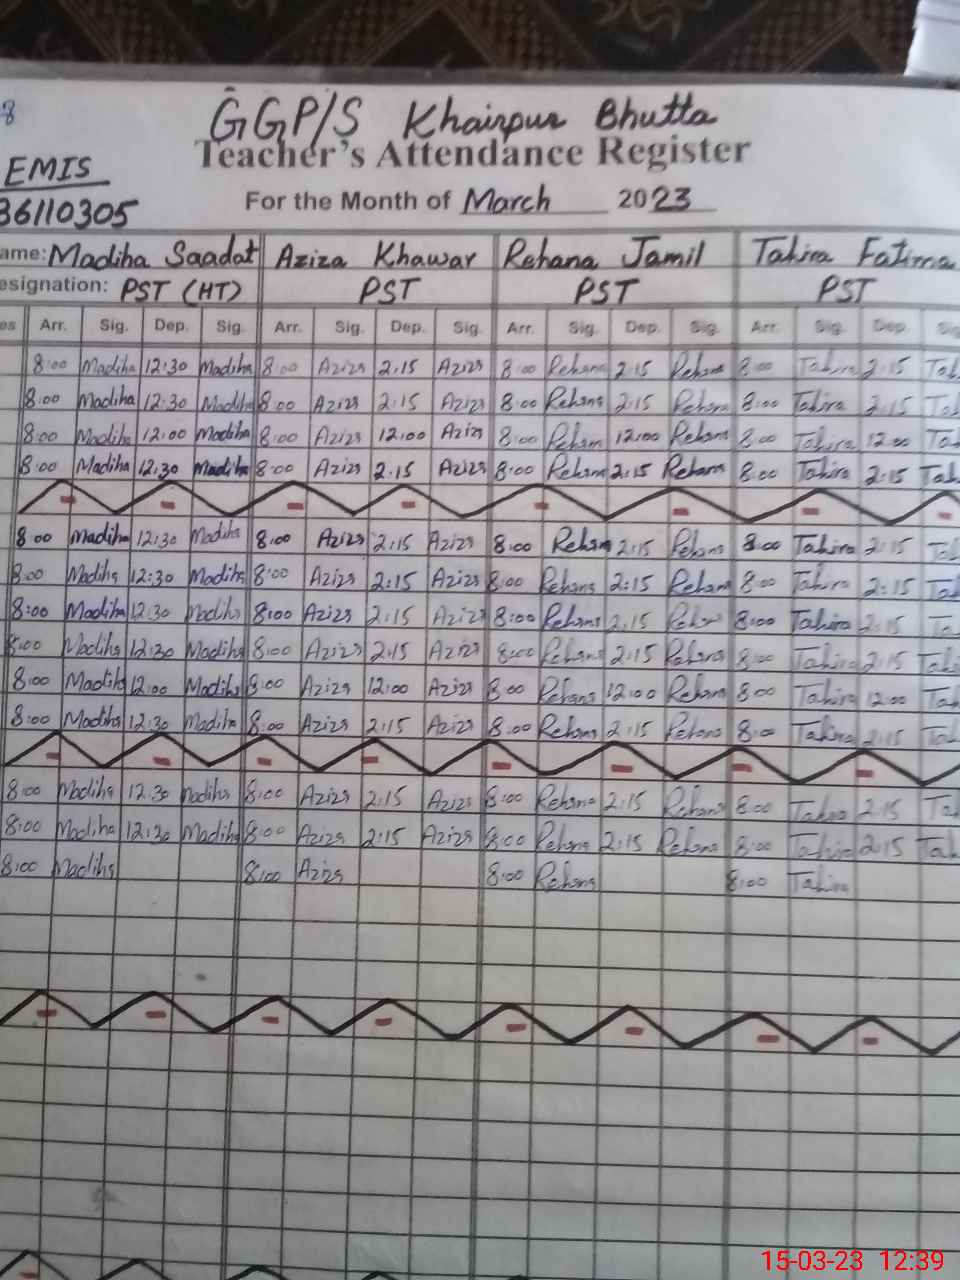 8
GGP/S Khairpur Bhutta
Teacher's Attendance Register
EMIS
36110305
For the Month of March 2023
ame: Madiha Saadat Aziza Khawar Rehana Jamil Tahira Fatima
esignation: PST (HT) PST PST PST
es Arr. Sig. Dep. Sig. Arr. Sig. Dep. Sig. Arr. Sig. Dep. Sig. Arr. Sig. Dep. Sig
8:00 Madiha 12:30 Madiha 8:00 Aziza 2:15 Aziza 8:00 Rehana 2:15 Rehana 8:00 Tahira 2:15 Tah
8:00 Madiha 12:30 Madiha 8:00 Aziza 2:15 Aziza 8:00 Rehana 2:15 Rehana 8:00 Tahira 2:15 Ta
8:00 Madiha 12:00 Madiha 8:00 Aziza 12:00 Aziza 8:00 Rehana 12:00 Rehana 8:00 Tahira 12:00 Ta
8:00 Madiha 12:30 Madiha 8:00 Aziza 2:15 Aziza 8:00 Rehana 2:15 Rehana 8:00 Tahira 2:15 Tah
8:00 Madiha 12:30 Madiha 8:00 Aziza 2:15 Aziza 8:00 Rehana 2:15 Rehana 8:00 Tahira 2:15 Ta
8:00 Madiha 12:30 Madiha 8:00 Aziza 2:15 Aziza 8:00 Rehana 2:15 Rehana 8:00 Tahira 2:15 Ta
8:00 Madiha 12:30 Madiha 8:00 Aziza 2:15 Aziza 8:00 Rehana 2:15 Rehana 8:00 Tahira 2:15 Ta
8:00 Madiha 12:30 Madiha 8:00 Aziza 2:15 Aziza 8:00 Rehana 2:15 Rehana 8:00 Tahira 2:15 Tah
8:00 Madiha 12:00 Madiha 8:00 Aziza 12:00 Aziza 8:00 Rehana 12:00 Rehana 8:00 Tahira 12:00 Ta
8:00 Madiha 12:30 Madiha 8:00 Aziza 2:15 Aziza 8:00 Rehana 2:15 Rehana 8:00 Tahira 2:15 Tah
8:00 Madiha 12:30 Madiha 8:00 Aziza 2:15 Aziza 8:00 Rehana 2:15 Rehana 8:00 Tahira 2:15 Ta
8:00 Madiha 12:30 Madiha 8:00 Aziza 2:15 Aziza 8:00 Rehana 2:15 Rehana 8:00 Tahira 2:15 Tah
8:00 Madiha 8:00 Aziza 8:00 Rehana 8:00 Tahira
15-03-23 12:39